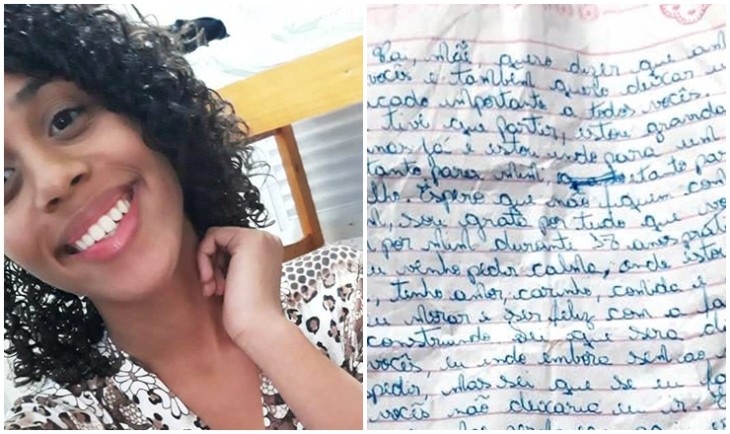 Pai, mãe, quero dizer que am
vocês e também quero deixar u
cado importante a todos vocês.
tive que partir, estou gravida
mas fui e estou indo para um
tanto para mim quanto par
lho. Espero que não fiquem con
, serei grata por tudo que vo
por mim durante 18 anos
eu venho pedir calma, onde estou
, tenho amor, carinho, comida e
eu morar e ser feliz com a fa
construindo sei que sera di
vocês, eu indo embora sem ao
pedir, mas sei que se eu fa
vocês não deixaria eu ir.